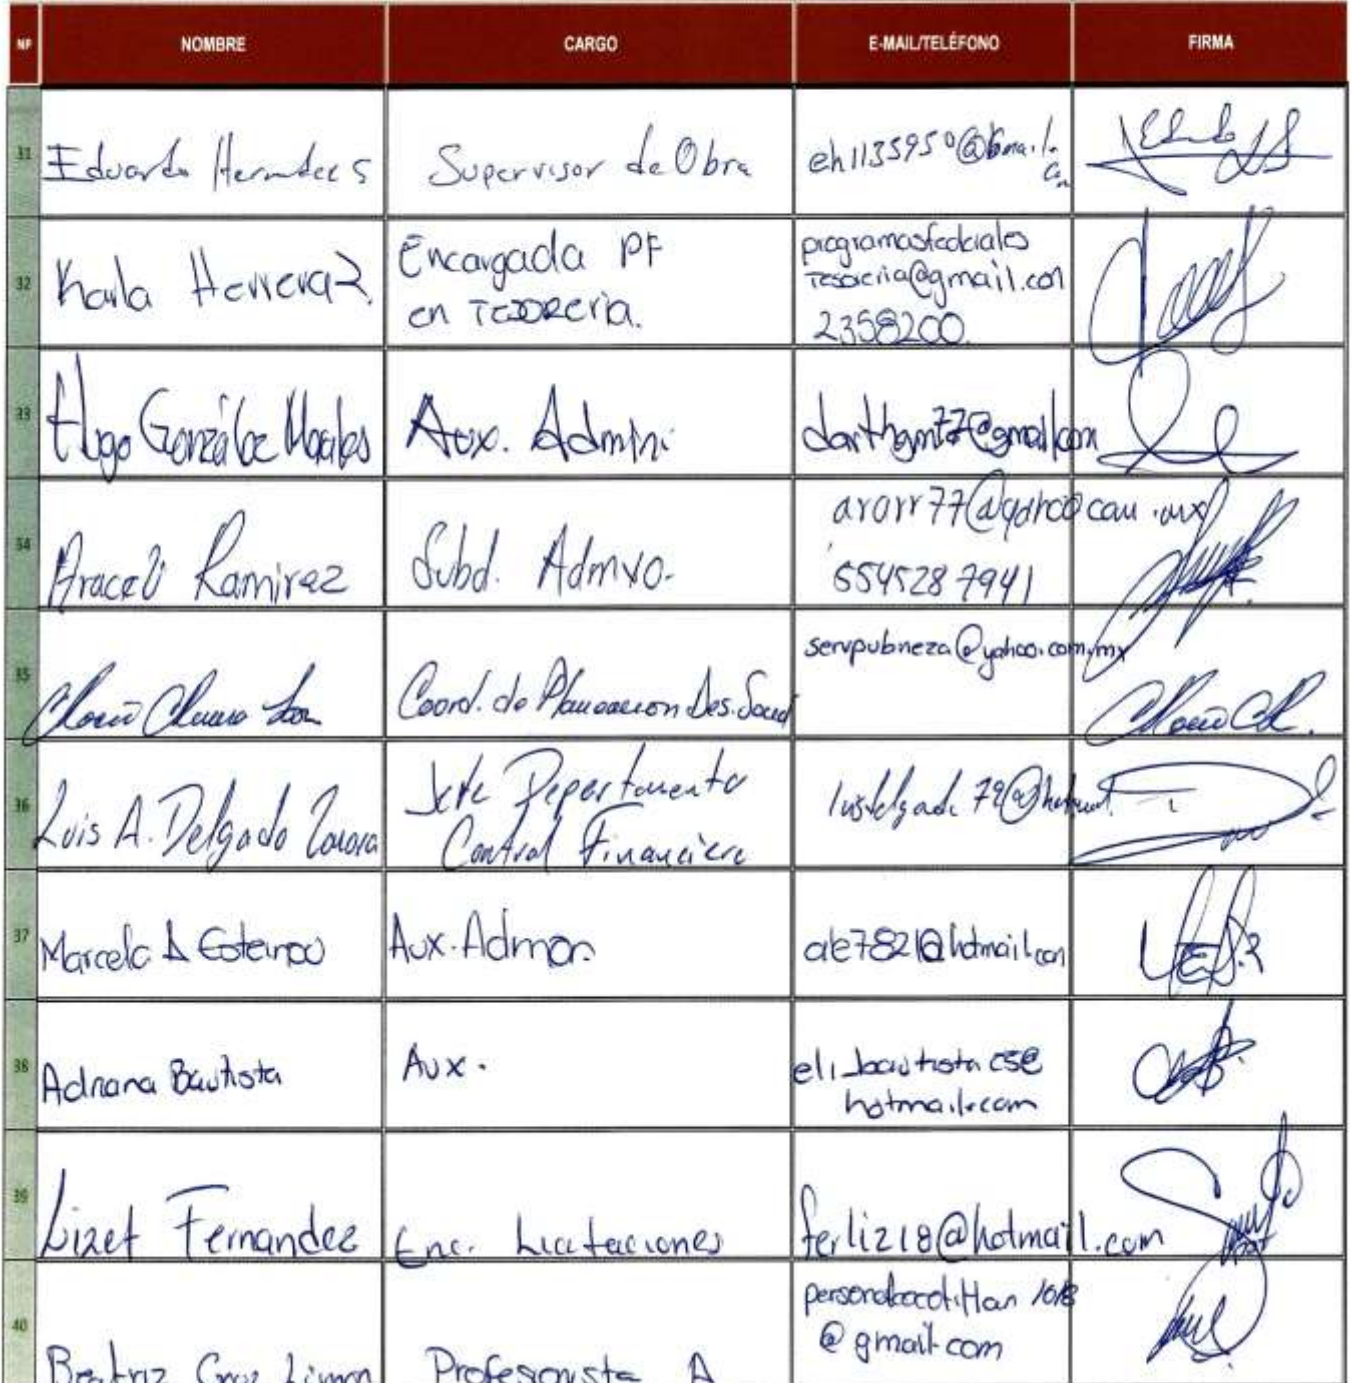 NP NOMBRE CARGO E-MAIL/TELÉFONO FIRMA
31 Eduardo Hernandez S Supervisor de Obra eh1135950@gmail.com
32 Karla Herrera R. Encargada PF programasfederales
en TESORERIA. Tesoreria@gmail.com
2358200
33 Hugo González Morales Aux. Admini darthgm77@gmail.com
34 Araceli Ramirez Subd. Admvo. arorr77@yahoo.com.mx
5545287941
35 Coord. de Planeacion Des. Social servpubneza@yahoo.com.mx
36 Luis A. Delgado Zamora Jefe Departamento luisdelgado72@hotmail.
Control Financiero
37 Marcela A Esteinou Aux. Admon. ale7821@hotmail.com
38 Adriana Bautista Aux. eli_bautista
hotmail.com
39 Lizet Fernandez Enc. Licitaciones ferliz18@hotmail.com
40 @gmail.com
Beatriz Cruz Limon Profesionista A